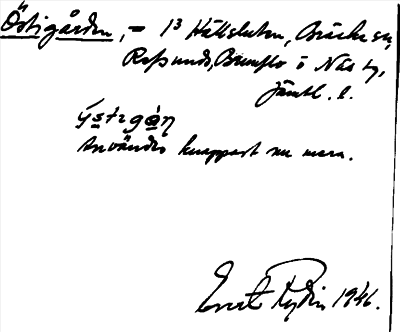 Östigården, – 1³ Hällsluten, Bräcke sn,
Refsunds, Brunflo o Näs tg,
Jämtl. l.
ýstıgɑ́ṇ
Användes knappast nu mera.
Evert Rydin 1946.